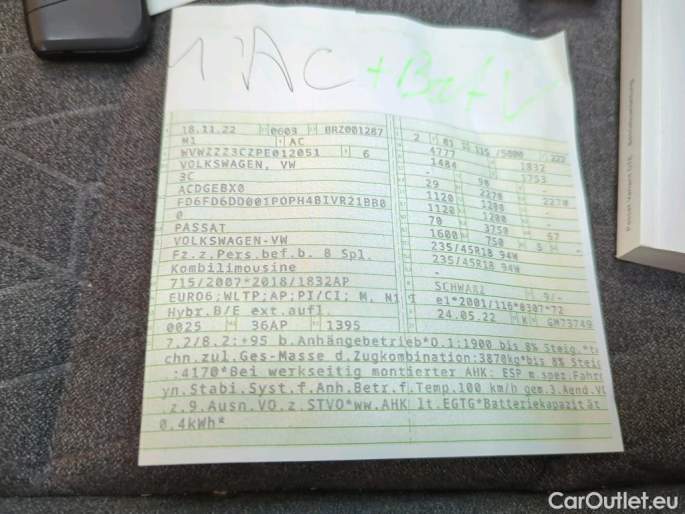 AC + Bat V
18.11.22 0603 BRZ001287
M1 AC
WVWZZZ3CZPE012051 6
VOLKSWAGEN, VW
3C
ACDGEBX0
FD6FD6DD001POPH4BIVR21BB0
0
PASSAT
VOLKSWAGEN-VW
Fz.z.Pers.bef.b. 8 Spl.
Kombilimousine
715/2007*2018/1832AP
EURO6;WLTP;AP;PI/CI; M, N1 I
Hybr.B/E ext.aufl.
0025 36AP 1395
2 01 115 /5000 222
4777 1832
1484 1753
- -
29 90 2270
1120 2270
1120 1200
70 1200 -
1600 3750 67
750 5 -
235/45R18 94W
235/45R18 94W
-
SCHWARZ 9/-
e1*2001/116*0307*72
24.05.22 K GM73749
7.2/8.2:+95 b.Anhängebetrieb*O.1:1900 bis 8% Steig.*te
chn.zul.Ges-Masse d.Zugkombination:3870kg*bis 8% Steig
:4170*Bei werkseitig montierter AHK: ESP m.spez.Fahrd
yn.Stabi.Syst.f.Anh.Betr.f.Temp.100 km/h gem.3.Aend.VO
.z.9.Ausn.VO.z.STVO*ww.AHK lt.EGTG*Batteriekapazität
0.4kWh*
CarOutlet.eu